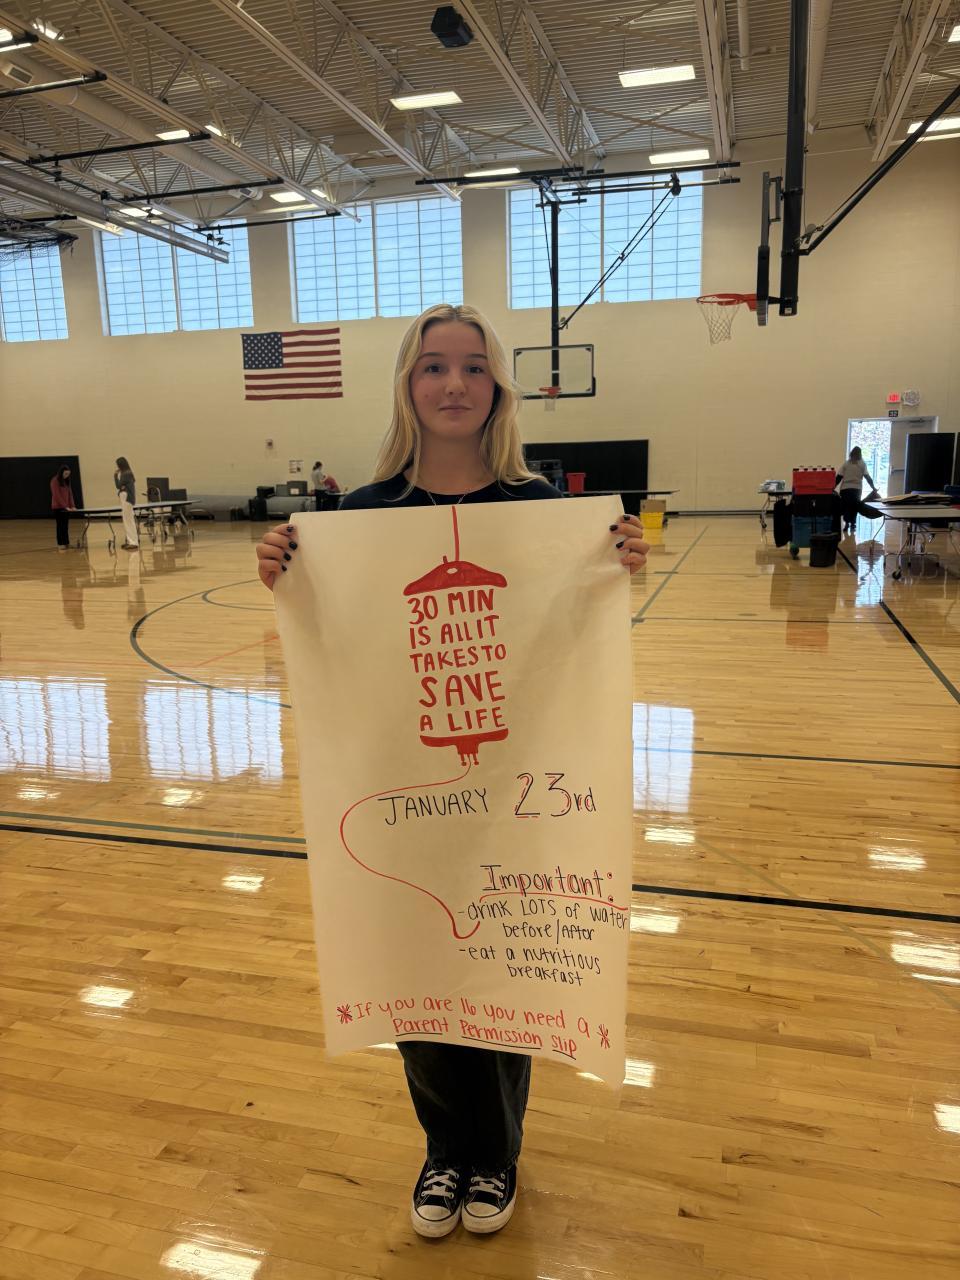 30 MIN
IS ALL IT
TAKES TO
SAVE
A LIFE
JANUARY 23rd
Important:
-drink LOTS of water
before/After
-eat a nutritious
breakfast
*If you are 16 you need a *
Parent Permission Slip